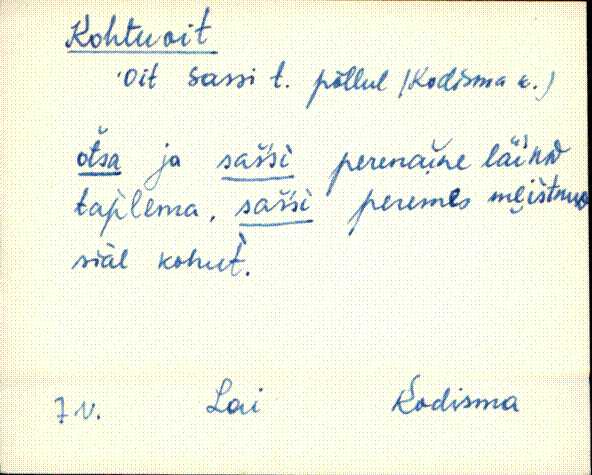 Kohtuoit
'Oit Sassi t. põllul (Kodisma k.)
otsa ja sašši perenaine läinD
taplema, sašši peremes mẹistnuD
siäl kohut.
7 v. Lai Kodisma